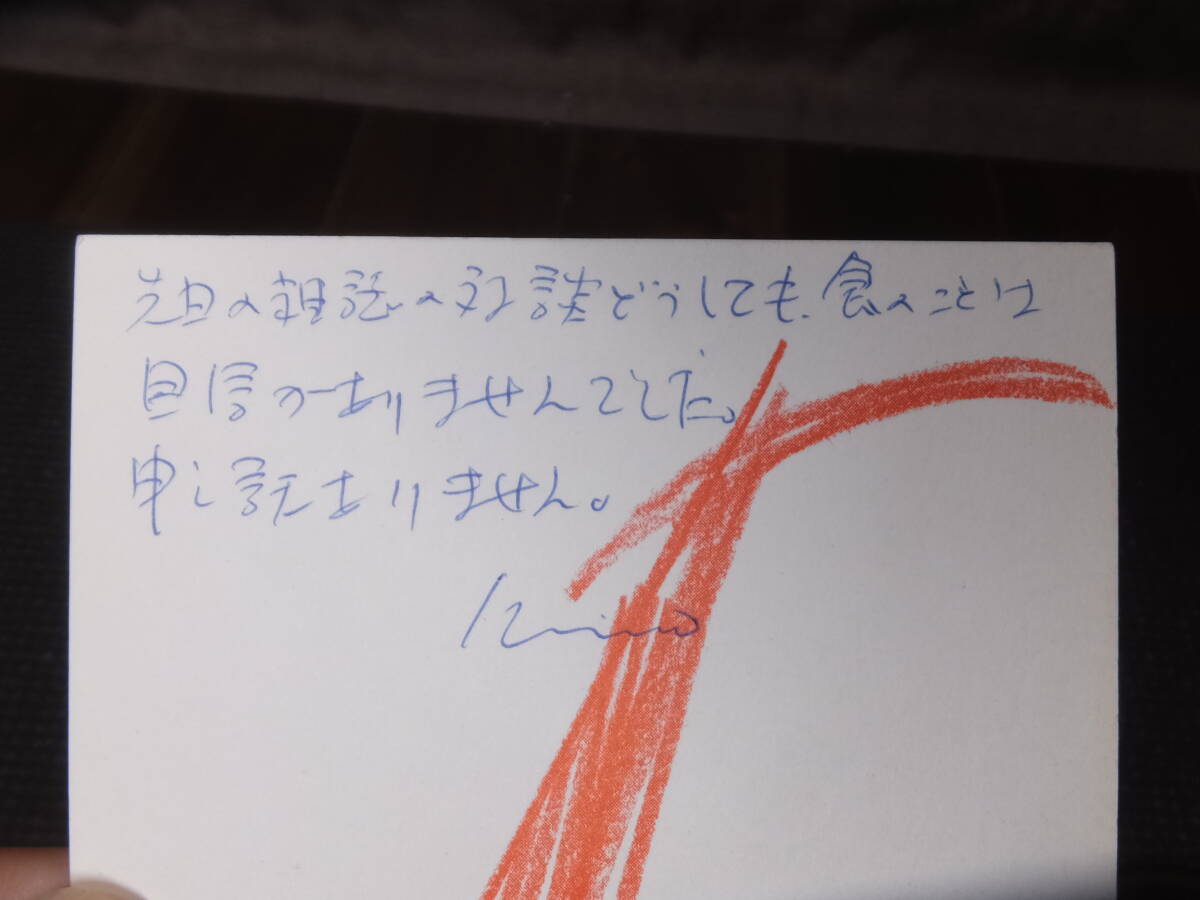 先日の雑誌の対談どうしても、食のことは
自信がありませんでした。
申し訳ありません。